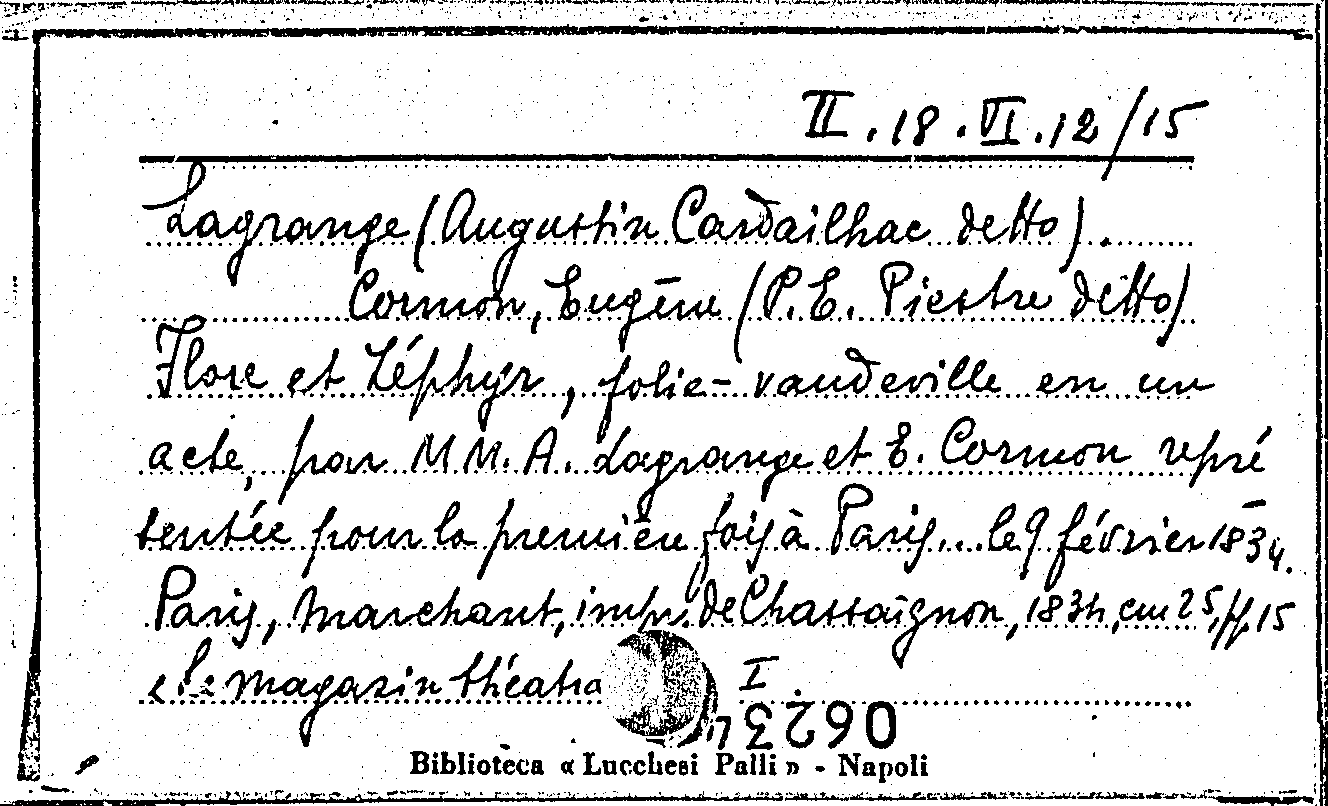 II.18.VI.12/15
Lagrange (Augustin Cardailhac detto).
Cormon, Eugène (P.E. Piestre detto)
Flore et Zéphyr, folie-vaudeville en un
acte, par MM. A. Lagrange et E. Cormon repré
sentée pour la première fois à Paris... le 9 février 1834.
Paris, Marchant, impr. de Chassaignon, 1834, cm 25, ff. 15
magasin théatra I.
06234
Biblioteca « Lucchesi Palli » - Napoli